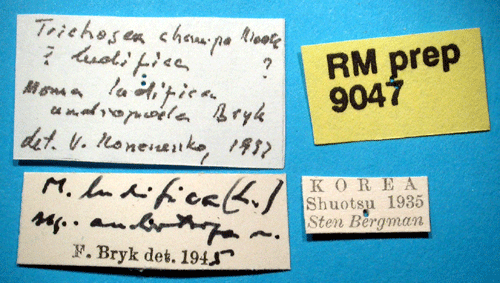 Trichosea champa Moore
? ludifica ?
Moma ludifica
Bryk
det. V. Kononenko, 1997
M. ludifica (L.)
F. Bryk det. 1945
RM prep
9047
KOREA
Shuotsu 1935
Sten Bergman